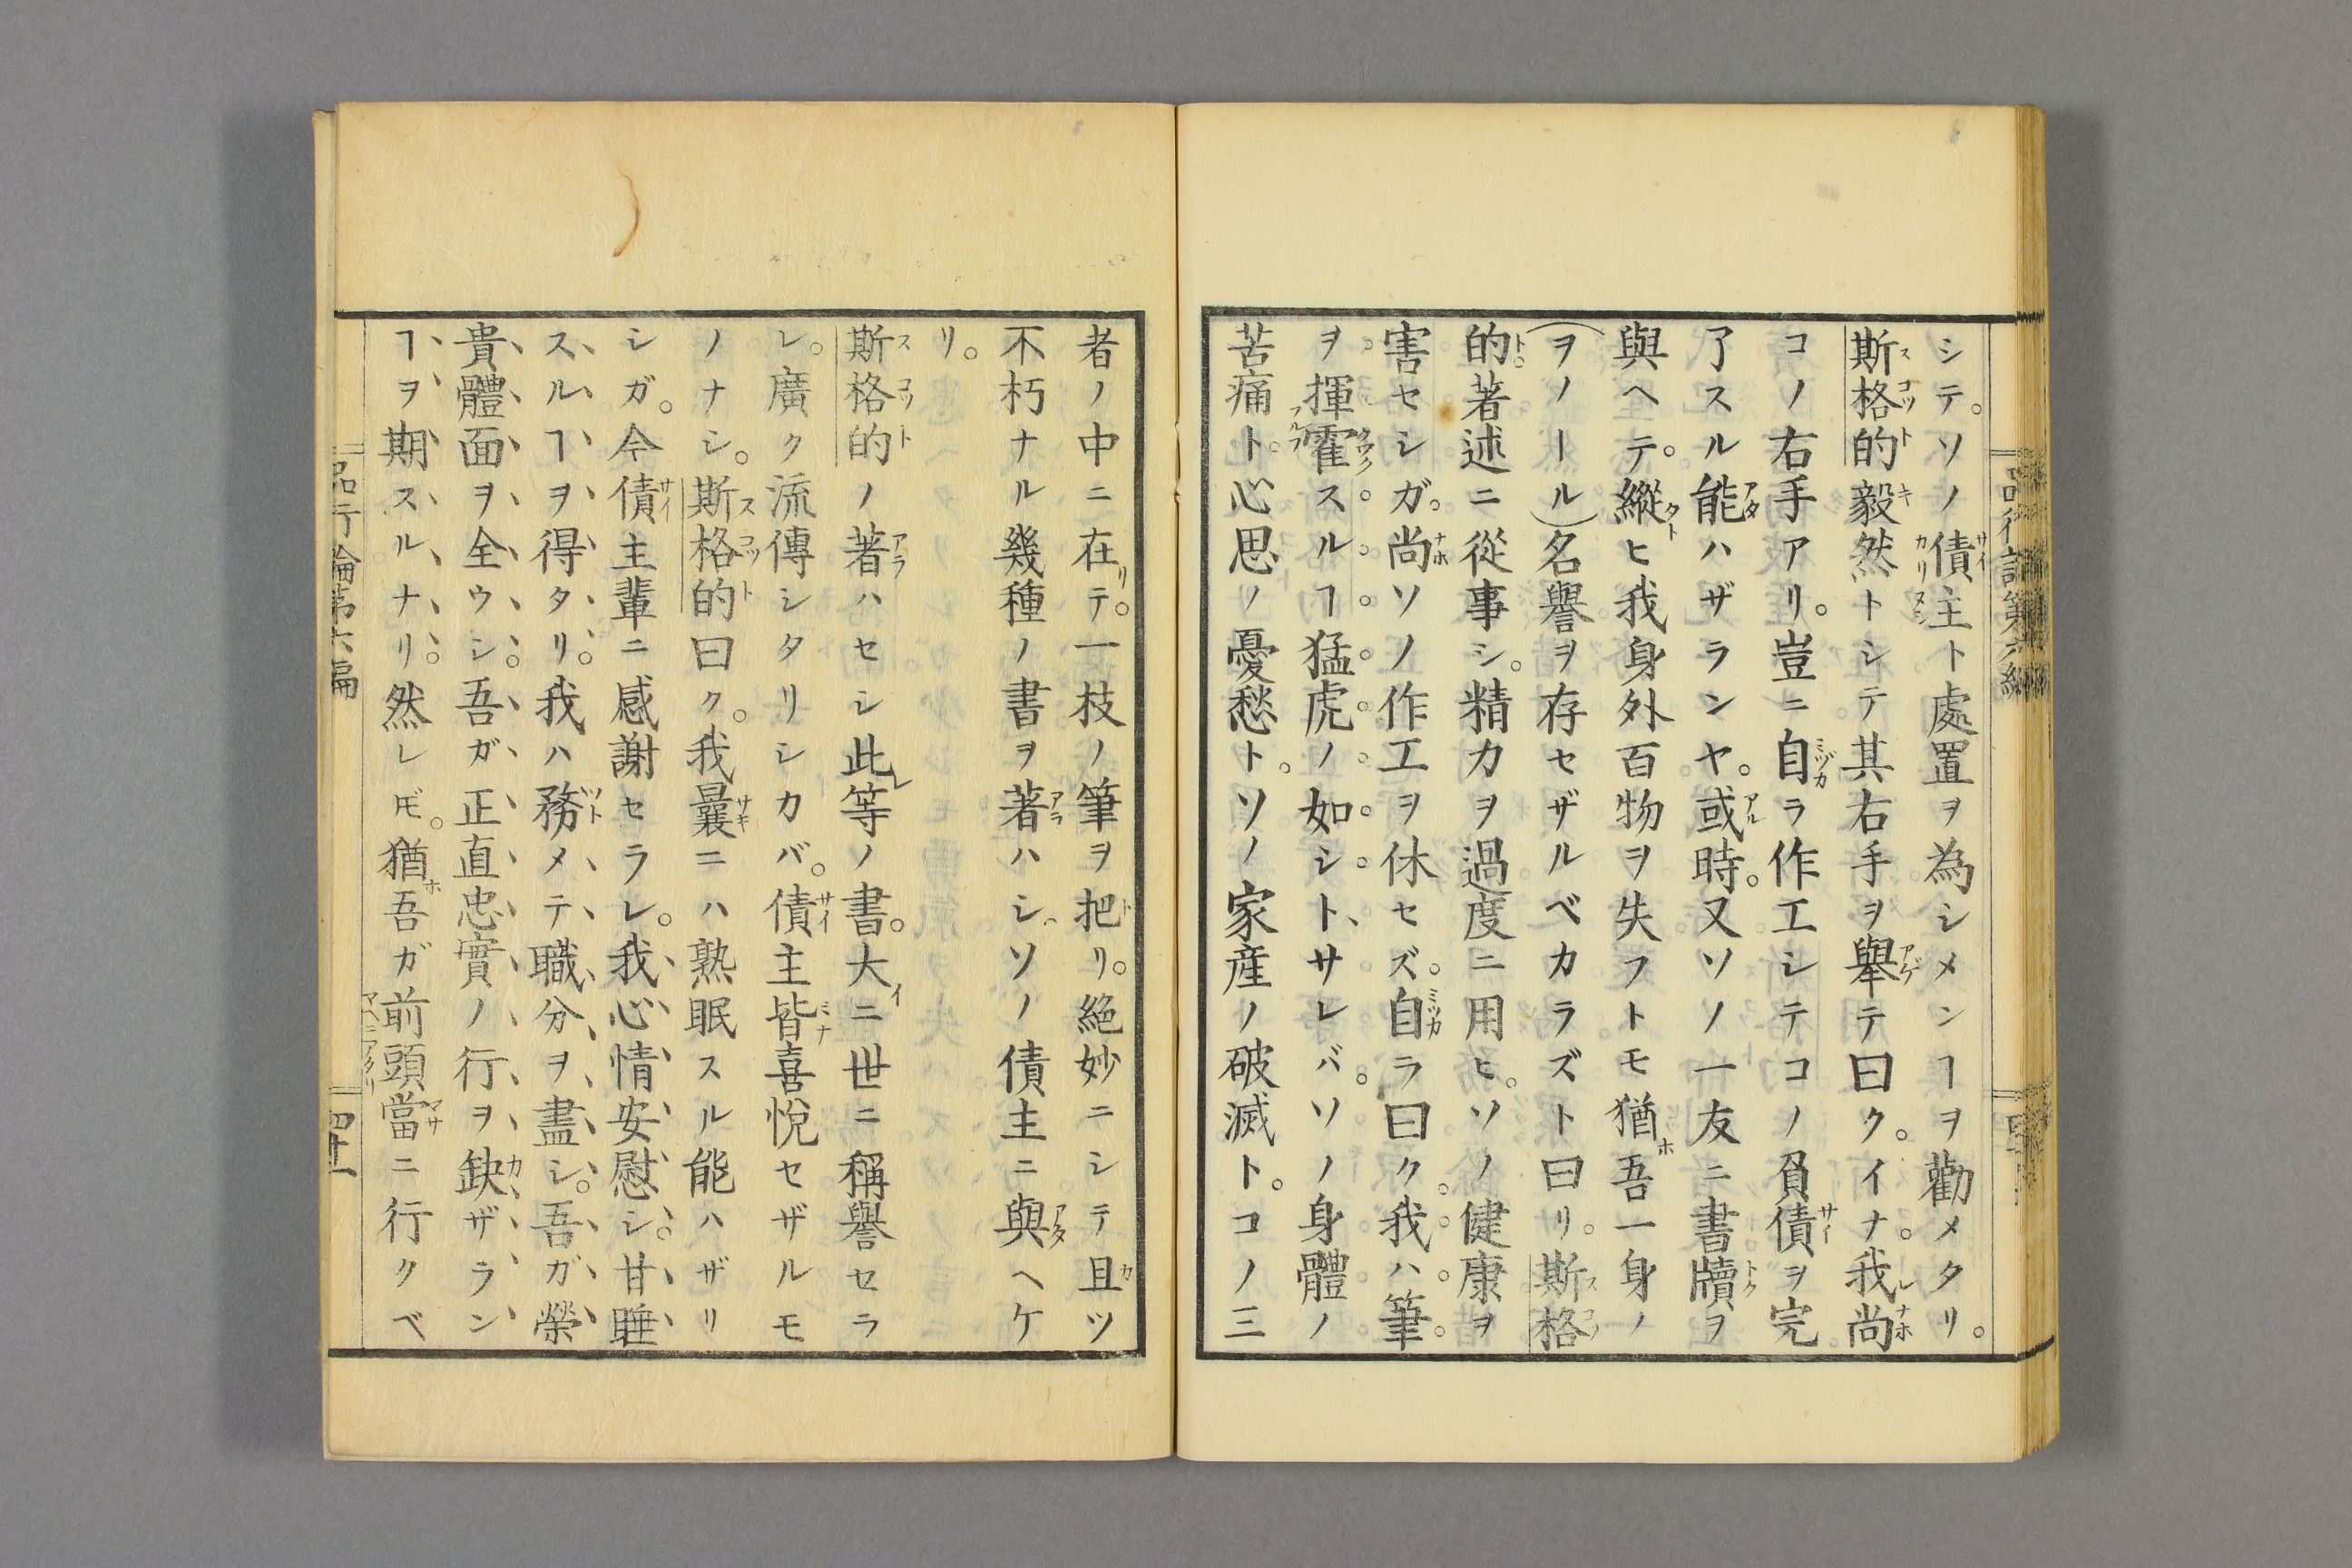 シテ。ソノ債主ト處置ヲ為シメンヿヲ勸メタリ。
斯格的毅然トシテ其右手ヲ舉テ曰ク。イナ。我尚
コノ右手アリ。豈ニ自ラ作工シテコノ負債ヲ完
了スル能ハザランヤ。或時。又ソノ一友ニ書牘ヲ
與ヘテ。縱ヒ我身外百物ヲ失フトモ猶ホ吾一身ノ
(ヲノール)名譽ヲ存セザルベカラズト曰リ。斯格
的。著述ニ從事シ。精力ヲ過度ニ用ヒ。ソノ健康ヲ
害セシガ。尚ソノ作工ヲ休セズ。自ラ曰ク。我ハ筆
ヲ揮霍スルヿ猛虎ノ如シト、サレバ。ソノ身體ノ
苦痛ト。心思ノ憂愁ト。ソノ家産ノ破滅ト。コノ三
者ノ中ニ在リテ。一枝ノ筆ヲ把リ。絶妙ニシテ且ツ
不朽ナル幾種ノ書ヲ著ハシ、ソノ債主ニ與ヘケ
リ。
斯格的ノ著ハセシ此レ等ノ書。大イニ世ニ稱譽セラ
レ。廣ク流傳シタリシカバ。債主皆喜悅セザルモ
ノナシ。斯格的曰ク。我曩ニハ熟眠スル能ハザリ
シガ。今債主輩ニ感謝セラレ。我心情安慰シ。甘睡
スルヿヲ得タリ。我ハ務メテ職分ヲ盡シ。吾ガ榮
貴體面ヲ全ウシ。吾ガ正直忠實ノ行ヲ缺ザラン
ヿヲ期スルナリ。然レ𪜈。猶ホ吾ガ前頭當ニ行クベ
品行論第六編
四十一